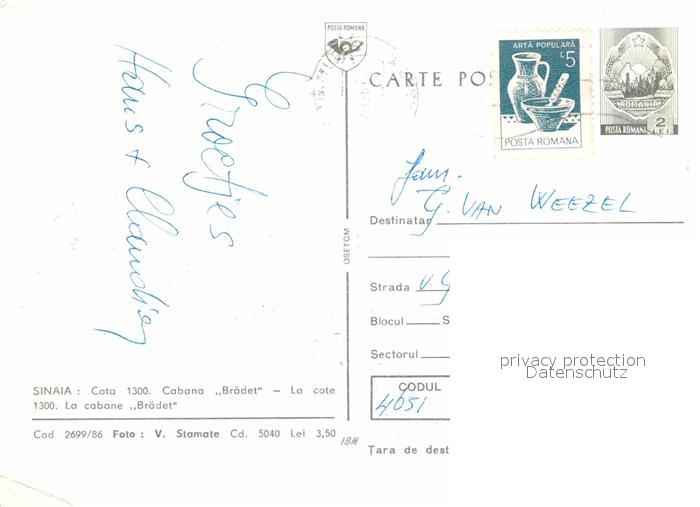 Groetjes
Hans + Claudia
SINAIA : Cota 1300. Cabana „Brădet“ — La cote
1300. La cabane „Brădet“
Cod 2699/86 Foto : V. Stamate Cd. 5040 Lei 3,50
IBH
OSETCM
POSTA ROMANA
CARTE POȘ
ARTĂ POPULARĂ
L5
POSTA ROMANA
ROMANIA
POSTA ROMANA 2 LEI
Fam.
Destinatar G. VAN WEEZEL
Strada v. G
Blocul S
Sectorul
privacy protection
Datenschutz
CODUL
4051
Țara de dest